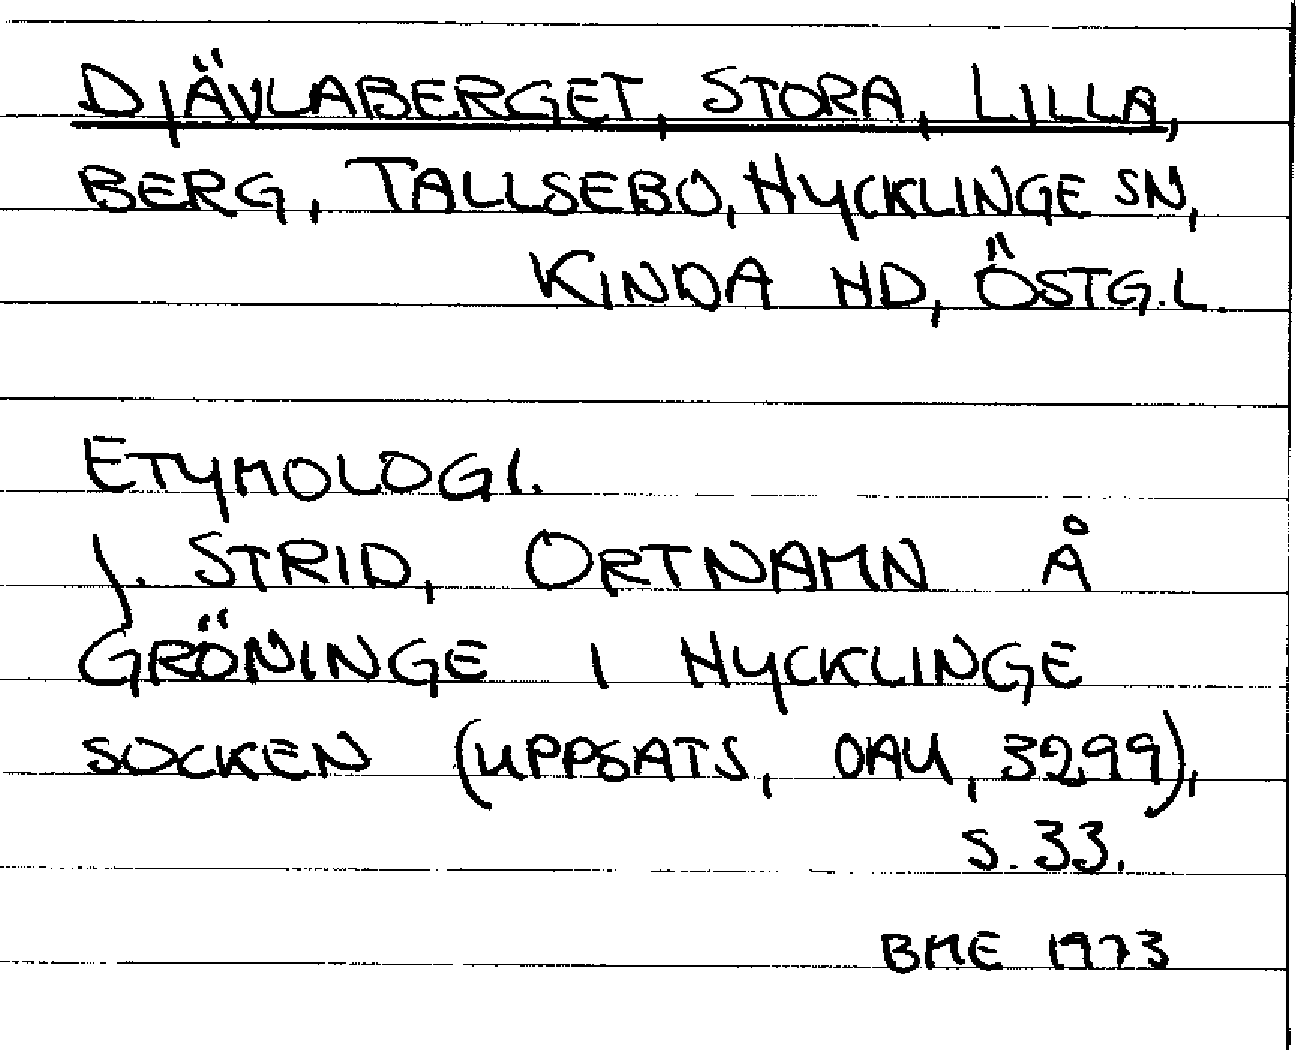 DJÄVLABERGET, STORA, LILLA,
BERG, TALLSEBO, HYCKLINGE SN,
KINDA HD, ÖSTG.L.
ETYMOLOGI.
J. STRID, ORTNAMN Å
GRÖNINGE I HYCKLINGE
SOCKEN (UPPSATS, OAU, 3299),
S. 33.
BME 1973